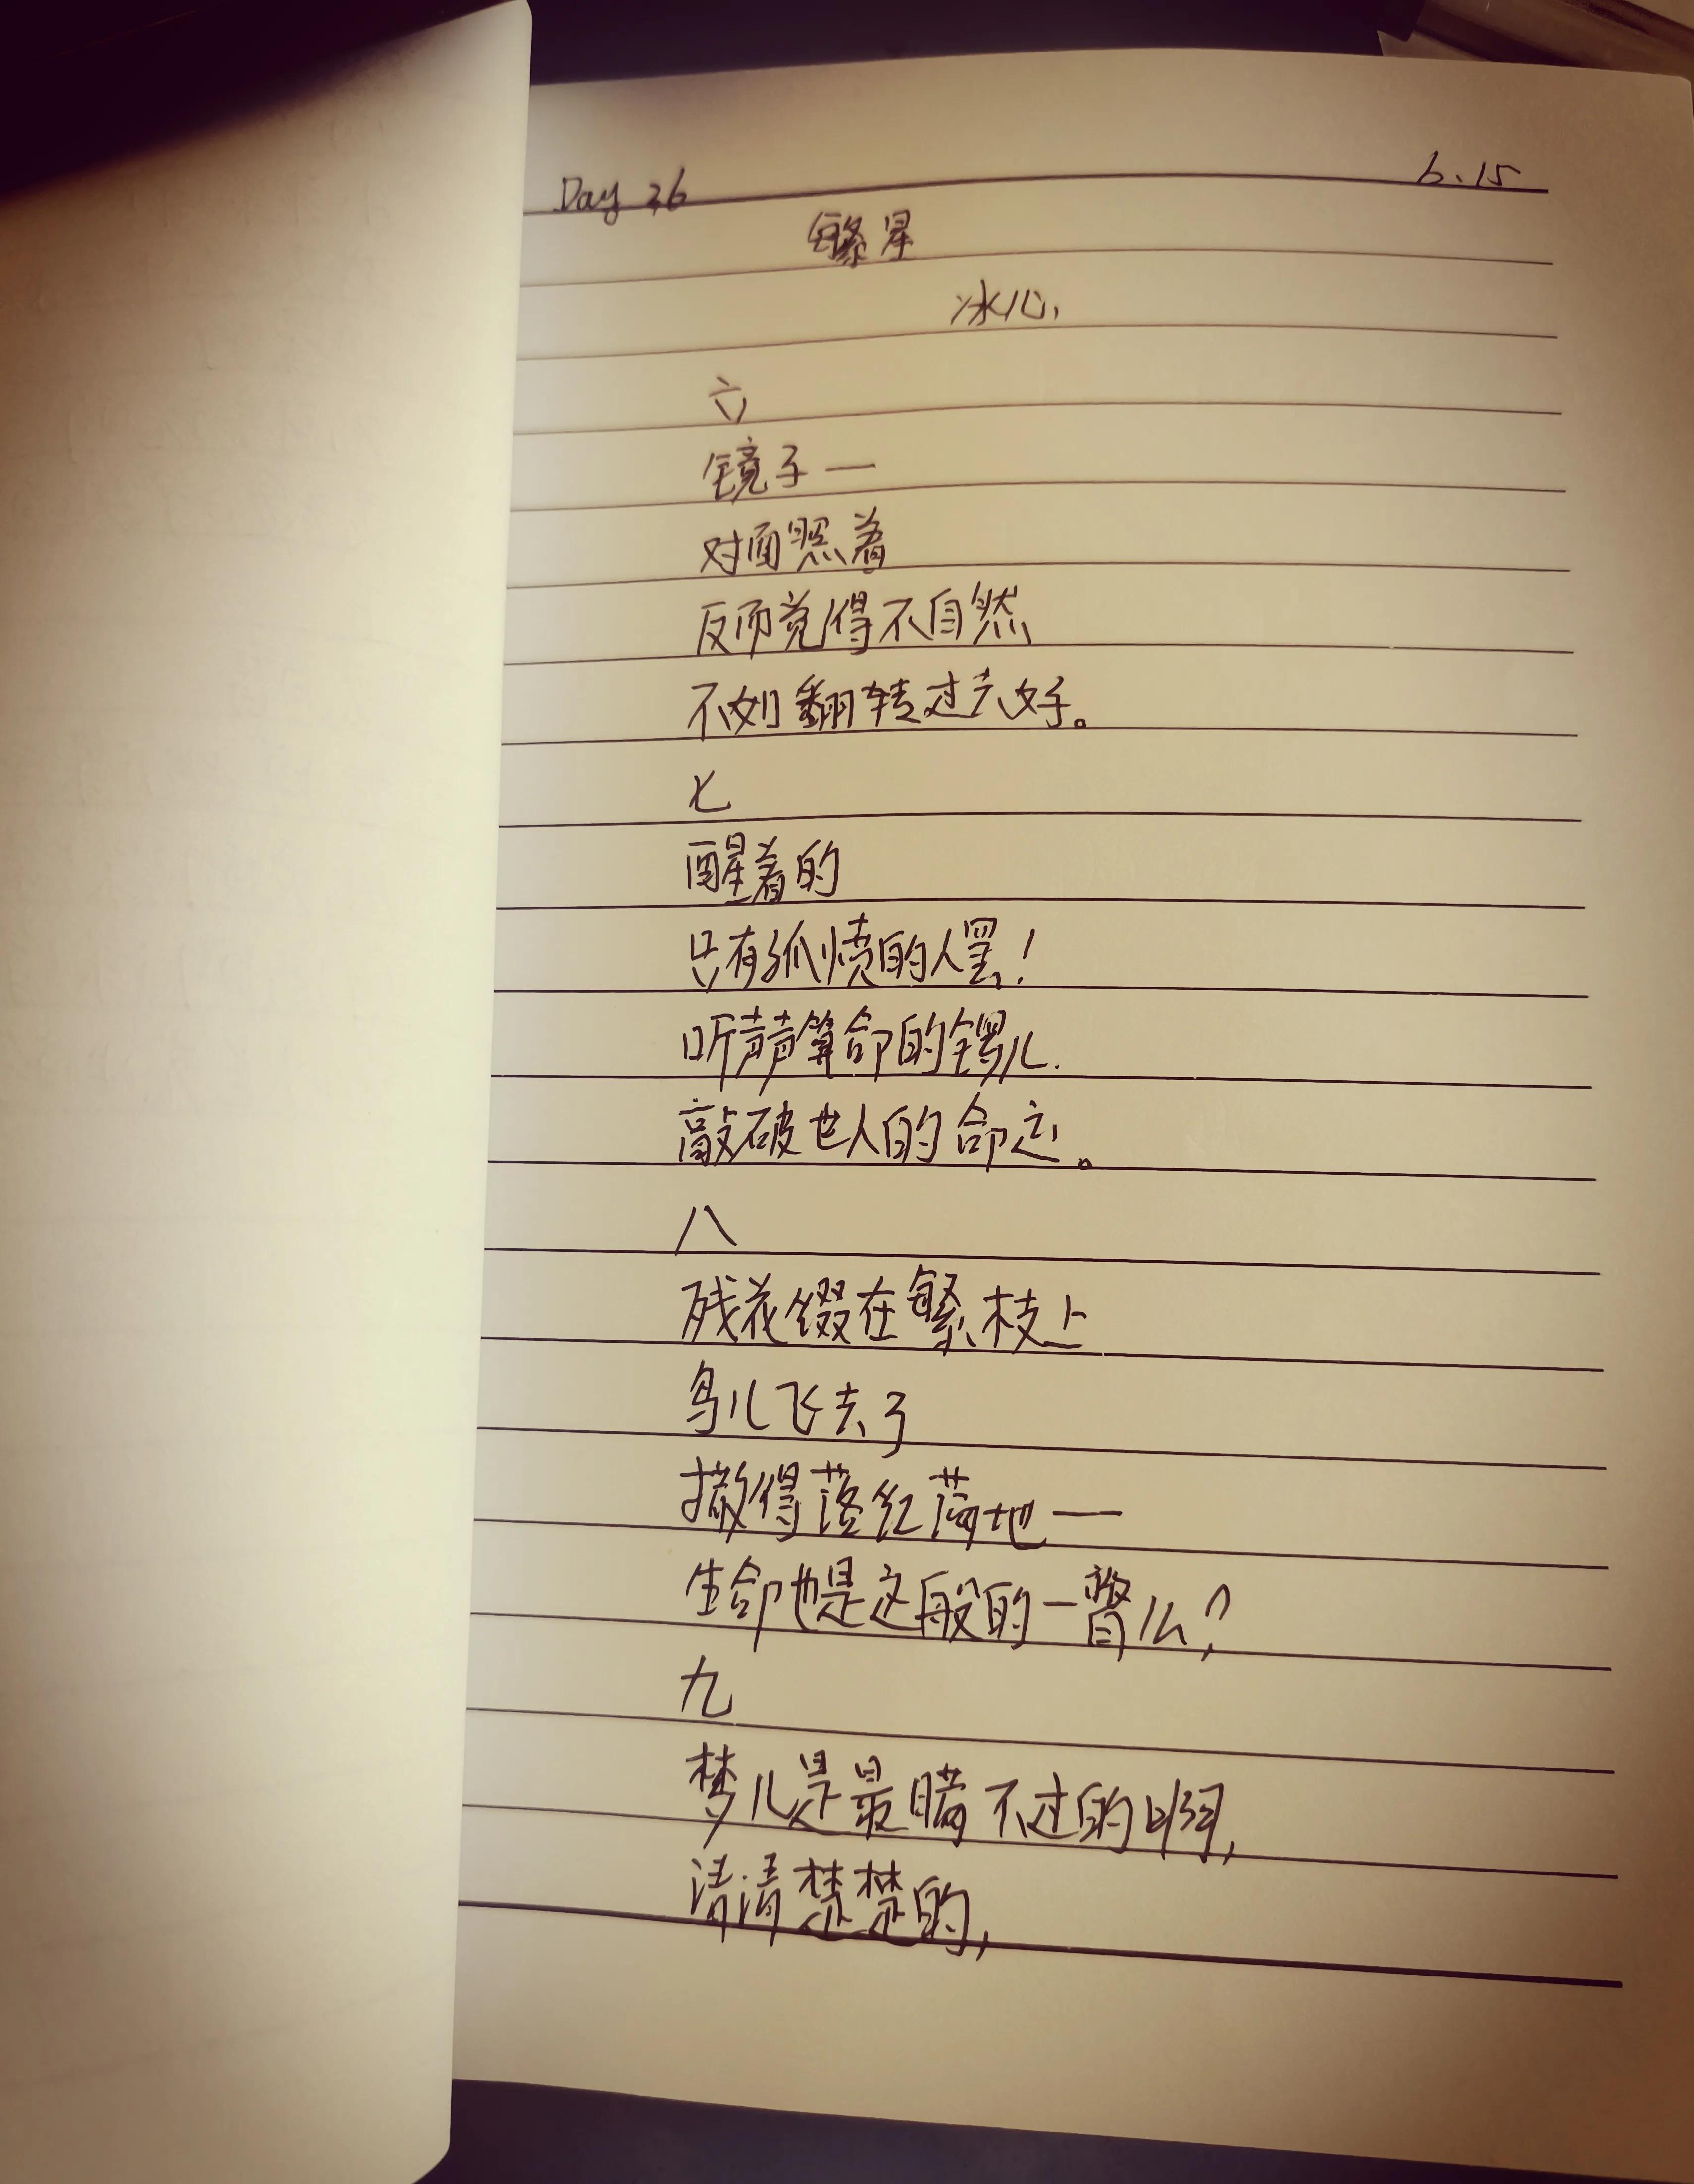 Day 26
6.15
繁星
冰心
六
镜子—
对面照着
反而觉得不自然
不如翻转过去好。
七
醒着的
只有孤愤的人罢！
听声声算命的锣儿.
敲破世人的命运。
八
残花缀在繁枝上
鸟儿飞去了
撒得落红满地—
生命也是这般的一瞥么？
九
梦儿是最瞒不过的啊,
清清楚楚的,